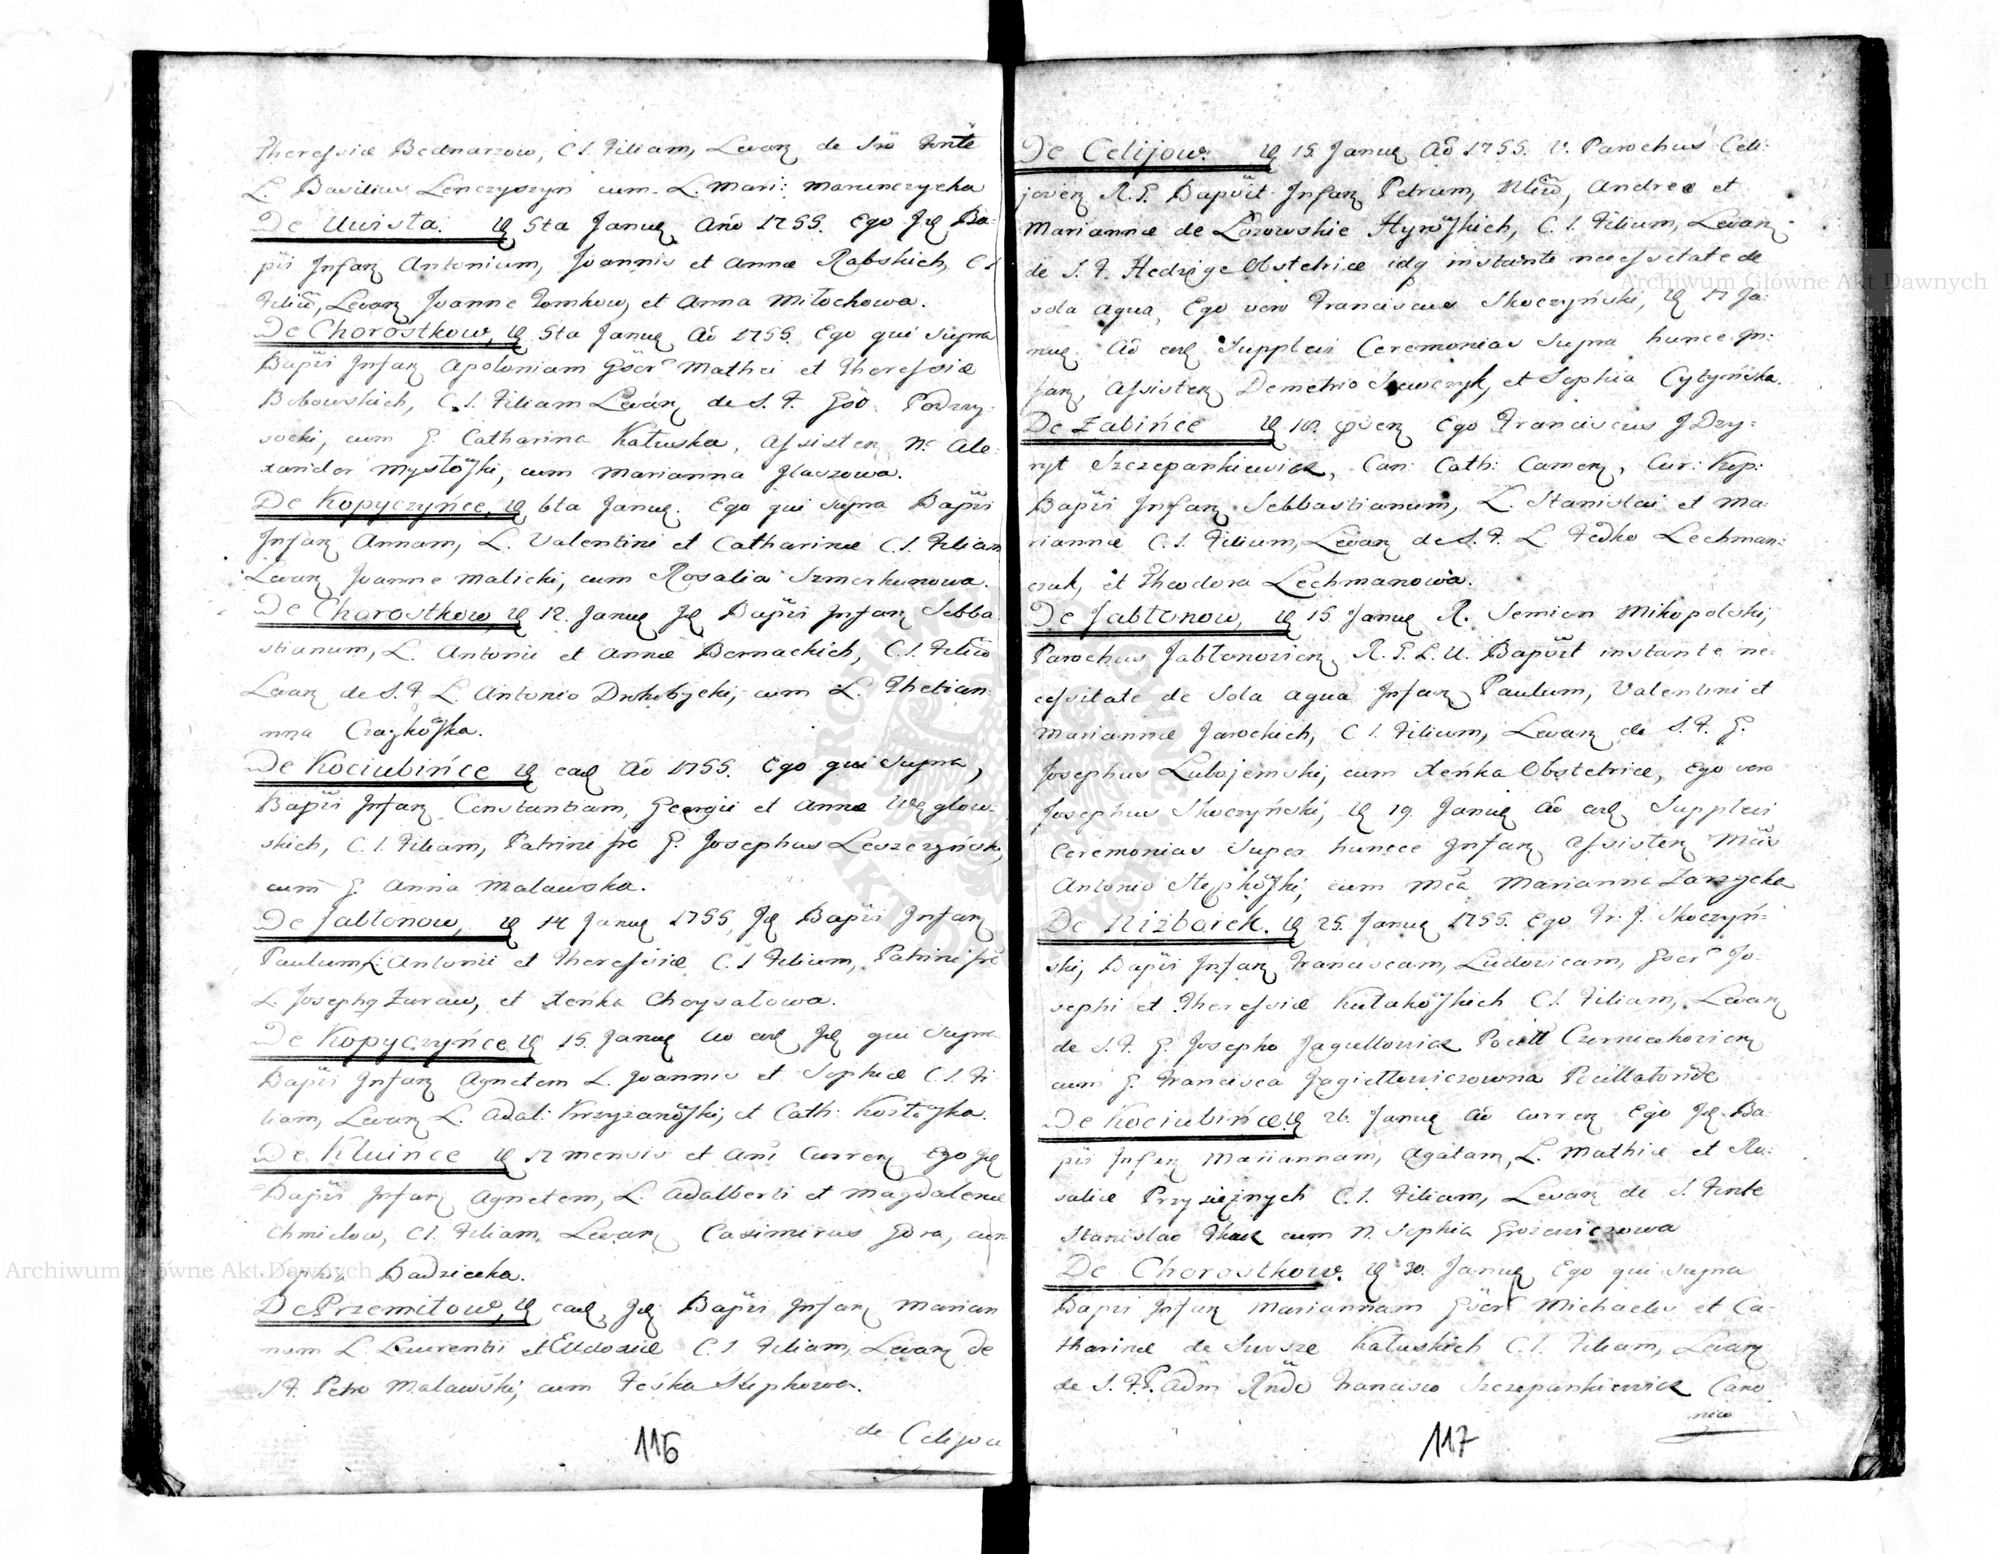 Theressiæ Bednarzow, C. L. Filiam, Levan de Sro Fonte
L. Basilius Lenczyszyn cum L. Mari: Marunczycha
De Uwisla. 5ta Janu Año 1755. Ego Ba-
pti Infan Antonium, Joannis et Annæ Rabskich, C L
Filiu, Levan Joanne Tomkow, et Anna Miłochowa.
De Chorostkow, 5ta Janu Aö 1755. Ego qui supra
Bapti Infan Apoloniam Gser Mathei et Theressiæ
Bobowskich, C. L. Filiam Levan de S. F. Gso Podwy-
socki, cum G. Catharina Kałuska, Assisten N. Ale-
xander Mysłowski, cum Marianna Jlaszowa.
De Kopyczyńce, 6ta Janu. Ego qui supra Bapti
Infan Annam, L. Valentini et Catharinæ C. L. Filiam
Levan Joanne Malicki, cum Rosalia Szmerkunowa.
De Chorostkow, 12. Janu Bapti Infan Sebba-
stianum, L. Antonii et Annæ Bernackich, C. L. Filiu
Levan de S. F. L. Antonio Drohobycki, cum L. Thetian-
nna Czaykowska.
De Kociubińce ead Aö 1755. Ego qui supra,
Bapti Infan Constantiam, Georgii et Annæ Węglow-
skich, C. L. Filiam, Patrini fre G. Josephus Leszczyński,
cum G. Anna Malawska.
De Jabłonow, 14 Janu 1755, Bapti Infan
Paulum L: Antonii et Theressiæ C. L Filium, Patrini fre
L. Joseph Zuraw, et Xeńka Chrysałowa.
De Kopyczyńce 15. Janu ao qui supra
Bapti Infan Agnetem L. Joannis et Sophiæ C. L. Fi-
liam, Levan L. Adal: Krzyżanowski, et Cath: Kozłowska.
De Kluince 12 mensis et Ani Curren Ego
Bapti Infan Agnetem, L. Adalberti et Magdalenæ
Chmielow, C L. Filiam, Levan Casimirus Gora, cum
Sophia Badziecka.
De Przemiłow, ead, Bapti Infan Marian
nam L. Laurentii et Eudoxiæ C. L. Filiam, Levan de
S F. Petro Malawski, cum Feśka Stepkowa.
de Celijow
116
De Celijow. 15 Janu Aö 1755. V. Parochus Celi-
joven R. G. Bapvit Infan Petrum, Andreæ et
Mariannæ de Łozowskie Hyrowskich, C. L. Filium, Levan
de S. F. Hedvige Obstetrice instante necessitate de
sola aqua, Ego vero Franciscus Skoczyński, 17 Ja-
nu Aö Supplevi Ceremonias Supra hunce In-
fan, Assisten Demetrio Szewczyk, et Sophia Cytyńska.
De Zabińce Ego Franciscus J Dzy-
ryt Szczepankiewicz, Can: Cath: Camen, Cur: Kop:
Bapti Infan Sebbastianum, L. Stanislai et Ma-
riannæ C. L. Filium, Levan de S. F. L. Fedko Lechman-
czuk, et Theodora Lechmanowa.
De Jabłonow, 15 Janu R. Semion Mikopolski,
Parochus Jabłonovien, R. G. L. U. Bapvit instante ne-
cessitate de sola aqua Infan Paulum, Valentini et
Mariannæ Jarockich, C. L. Filium, Levan de S. F. G.
Josephus Lubojemski, cum Xeńka Obstetrice, Ego vero
Josephus Skoczyński, 19 Janu Aö Supplevi
Ceremonias Super hunece Infan Assisten
Antonio Stepkowski, cum Marianna Zarzycka
De Nizborek. 25. Janu 1755. Ego Fr: J. Skoczyń-
ski, Bapti Infan Franciscam, Ludovicam, Gser Jo-
sephi et Theressiæ Kułakowskich C. L. Filiam, Levan
de S. F. G. Josepho Jagiellowicz Pocill Czerniechovien
cum G. Francisca Jagiellowiczowna Pocillatoride
De Kociubińce 26. Janu Aö curren Ego Ba-
pti Infan Mariannam, Agatam, L. Mathiæ et Ro-
saliæ Przysiężnych C. L. Filiam, Levan de S. Fonte
Stanislao Tkacz cum N. Sophia Grozewiczowa
De Chorostkow. 30. Janu Ego qui supra
Bapti Infan Mariannam Gser Michaelis et Ca-
tharinæ de Susze Kałuskich C. L. Filiam, Levan
de S. F. Adm Rndo Francisco Szczepankiewicz Cano
nico
117
Archiwum Główne Akt Dawnych
Archiwum Główne Akt Dawnych